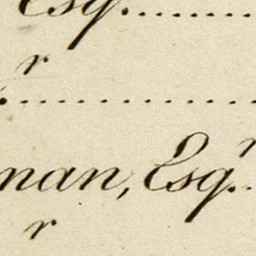 Esq.
r
man, Esq.
r